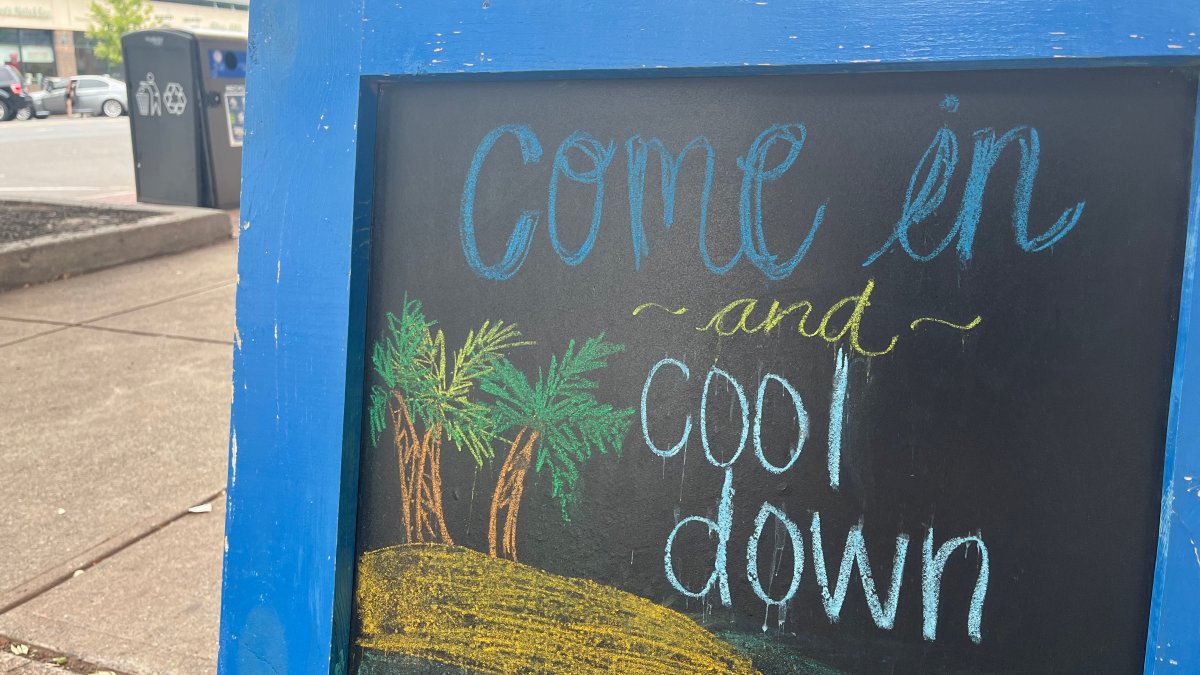 Come in
~and~
cool
down